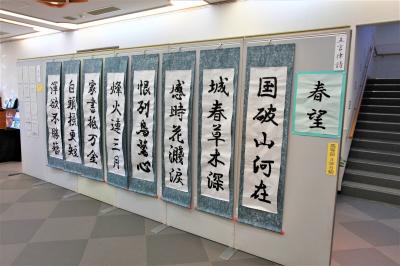 五言律詩
春望
国破山河在
城春草木深
感時花濺涙
恨別鳥驚心
烽火連三月
家書抵万金
白頭掻更短
渾欲不勝簪